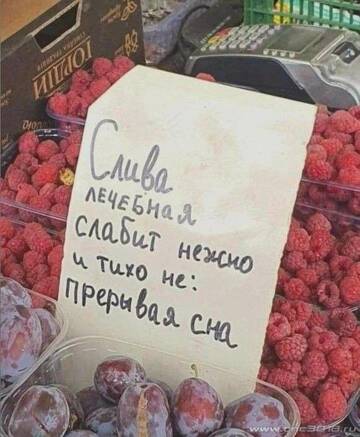 Слива
лечебная
слабит нежно
и тихо не:
прерывая сна